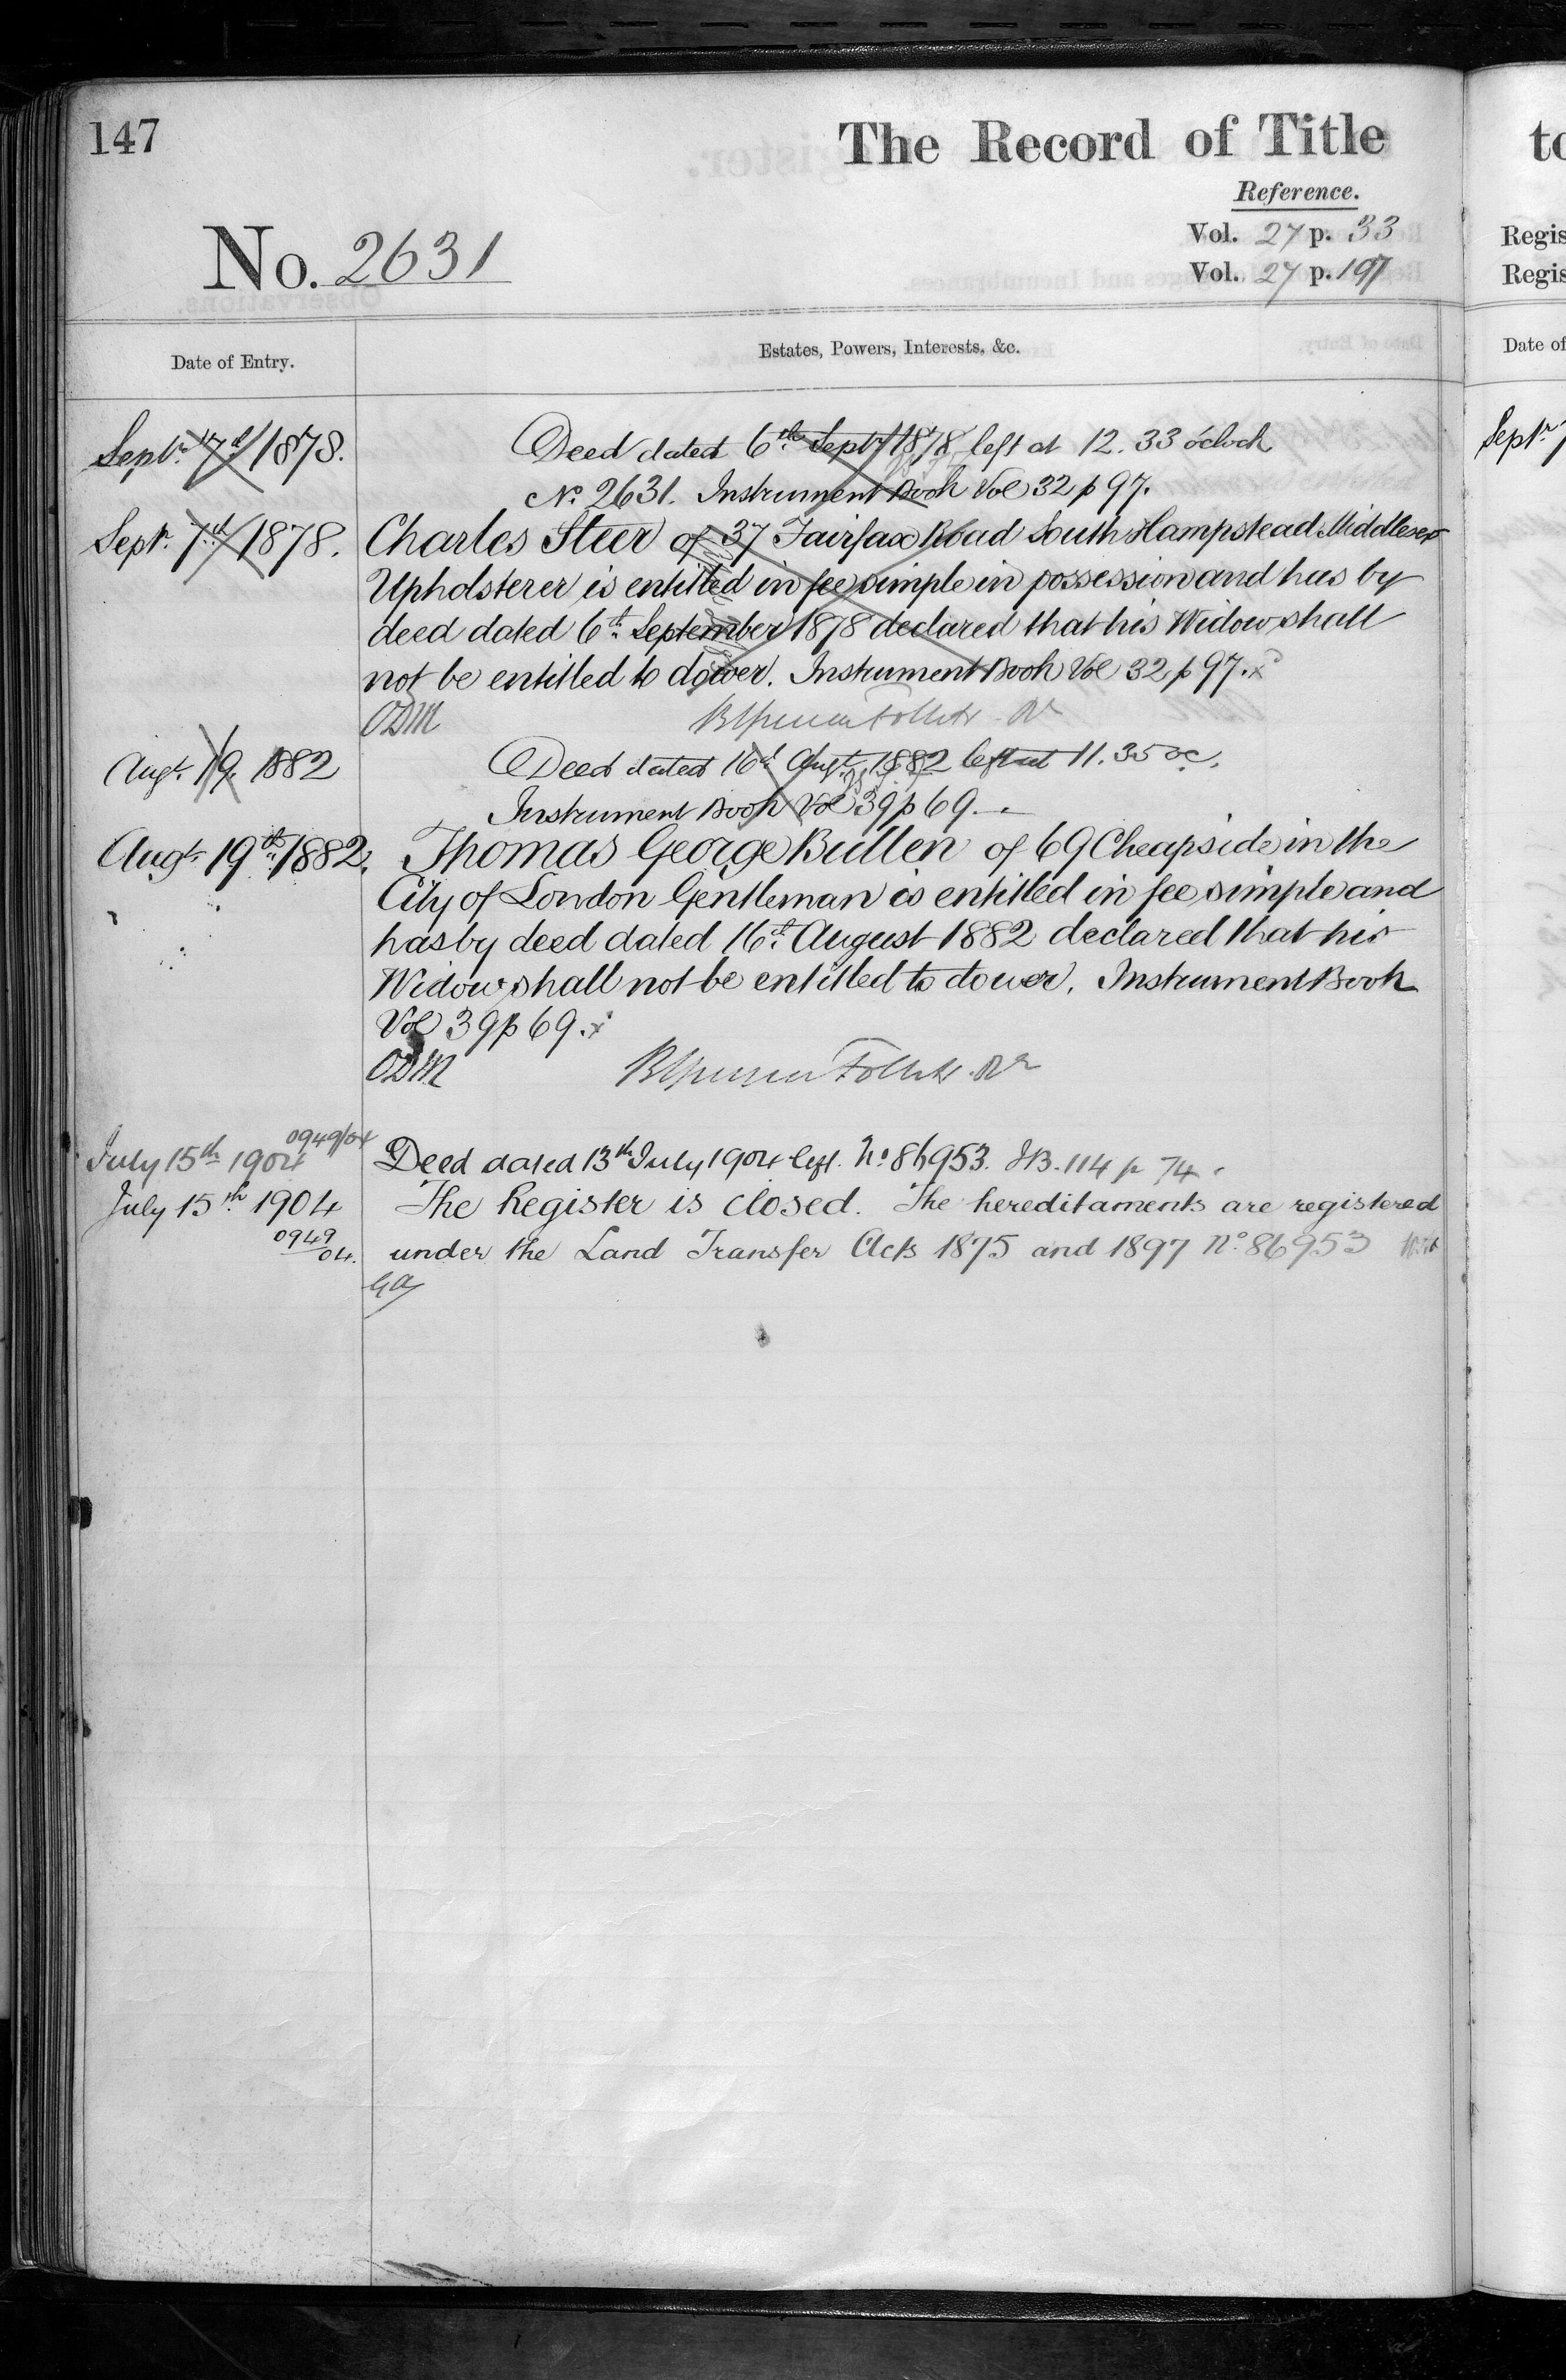 147
The Record of Title
to
Reference.
Vol. 27 p. 33
Regis
No. 2631
Vol. 27 p. 197
Regis
Date of Entry.
Estates, Powers, Interests, &c.
Date of
Septr. 7th 1878.
Deed dated 6th Septr 1878 left at 12.33 o'clock
Septr 7
No. 2631. Instrument Book Vol 32 p 97.
Septr. 7th 1878.
Charles Steer of 37 Fairfax Road South Hampstead Middlesex
Upholsterer is entitled in fee simple in possession and has by
deed dated 6th September 1878 declared that his Widow shall
not be entitled to dower. Instrument Book Vol 32 p 97. x
ODM
Augt. 19 1882
Deed dated 16th Augt. 1882 left at 11.35 oc.
Instrument Book Vol 39 p 69.
Augt. 19th 1882.
Thomas George Bullen of 69 Cheapside in the
City of London Gentleman is entitled in fee simple and
has by deed dated 16th August 1882 declared that his
Widow shall not be entitled to dower. Instrument Book
Vol 39 p 69. x
ODM
0949/04
July 15th 1904
Deed dated 13th July 1904 left. No. 86953. I.B. 114 p 74.
July 15th 1904
The Register is closed. The hereditaments are registered
0949
04.
under the Land Transfer Acts 1875 and 1897 No. 86953